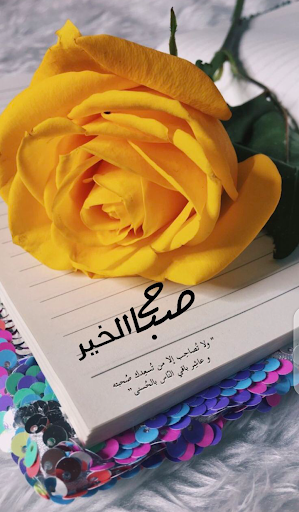 صباح الخير
"ولا تصاحب إلا من تسعدك صُحبته
و عاشر باقي النّاس بالحُسنى"